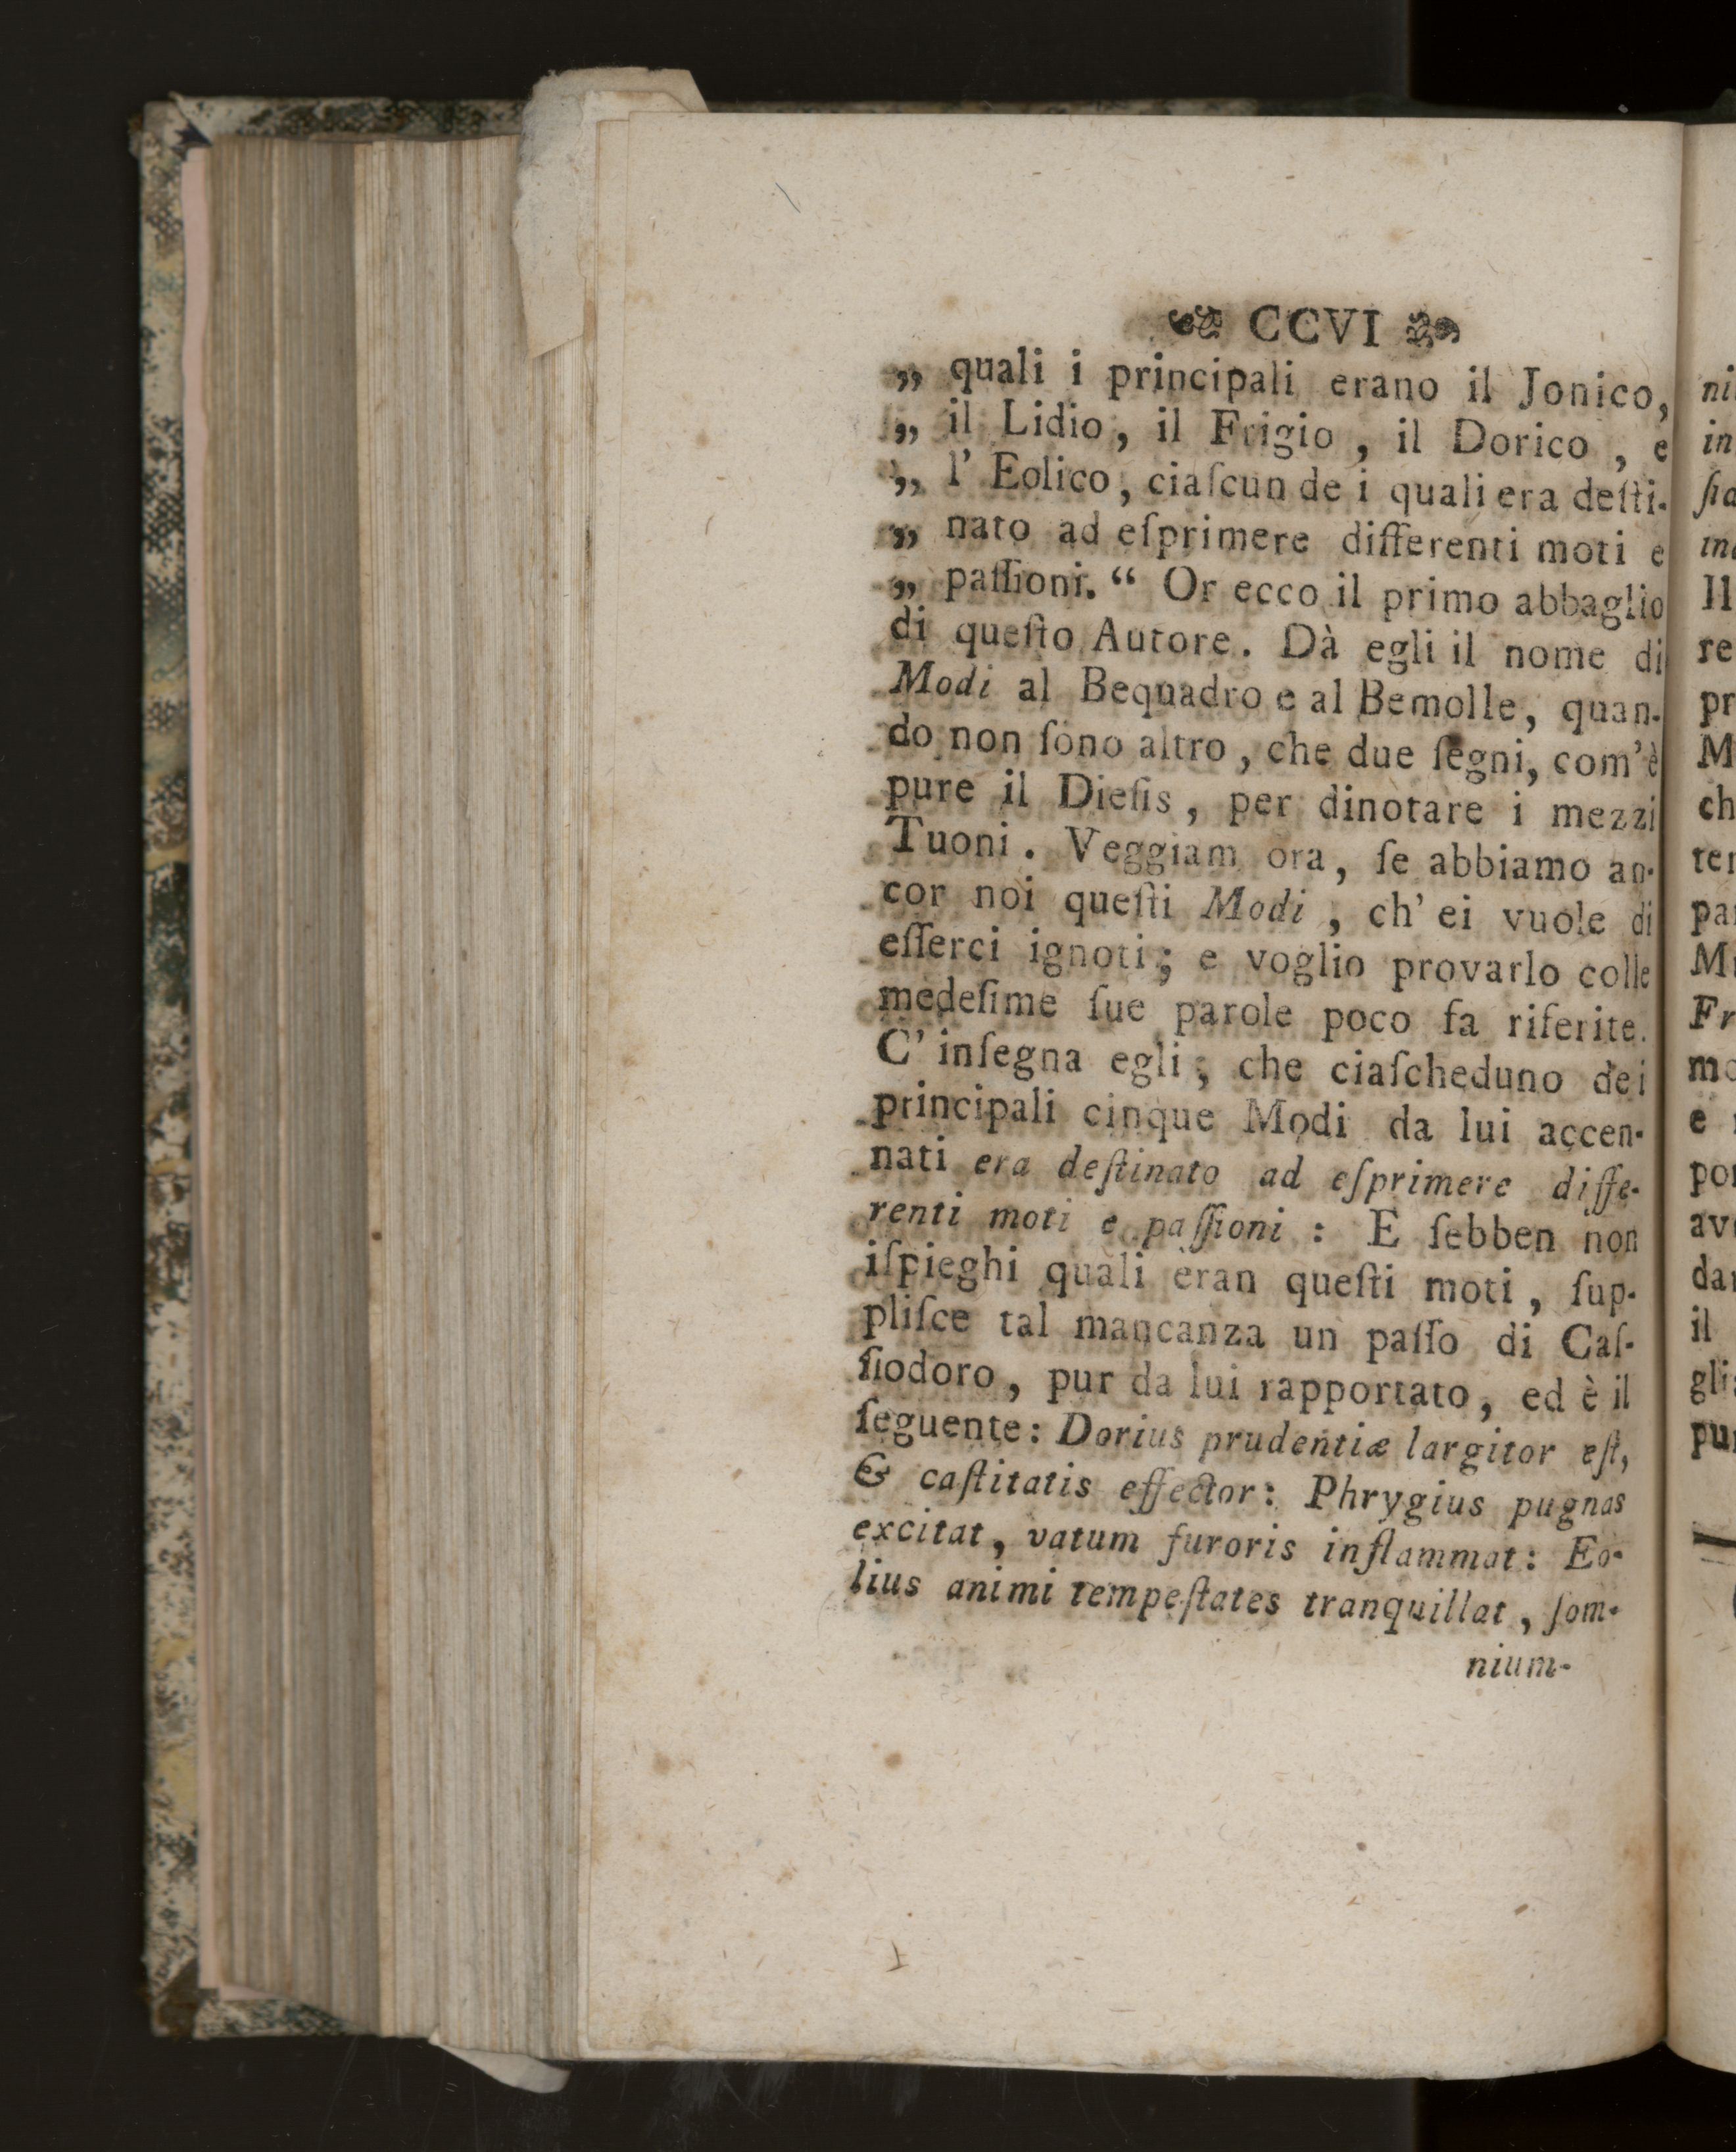 CCVI
„ quali i principali erano il Jonico,
„ il Lidio, il Frigio, il Dorico, e
„ l' Eolico, ciaſcun de i quali era deſti-
„ nato ad eſprimere differenti moti e
„ paſſioni. “ Or ecco il primo abbaglio
di queſto Autore. Dà egli il nome di
Modi al Bequadro e al Bemolle, quan-
do non ſono altro, che due ſegni, com'è
pure il Dieſis, per dinotare i mezzi
Tuoni. Veggiam ora, ſe abbiamo an-
cor noi queſti Modi, ch' ei vuole di
eſſerci ignoti; e voglio provarlo colle
medeſime ſue parole poco fa riferite.
C' inſegna egli, che ciaſcheduno dei
principali cinque Modi da lui accen-
nati era deſtinato ad eſprimere diffe-
renti moti e paſſioni: E ſebben non
iſpieghi quali eran queſti moti, ſup-
pliſce tal mancanza un paſſo di Caſ-
ſiodoro, pur da lui rapportato, ed è il
ſeguente: Dorius prudentiæ largitor eſt,
& caſtitatis effector: Phrygius pugnas
excitat, vatum furoris inflammat: Eo-
lius animi tempeſtates tranquillat, ſom-
nium-
ni
in
ſia
Il
re
pr
M
ch
ter
pa
M
Fr
mo
e
por
av
dar
il
gli
pu